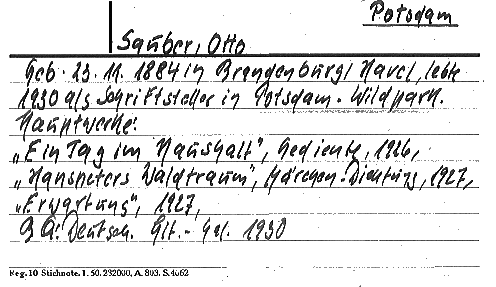 Potsdam
Sauber, Otto
Geb. 23. 11. 1884 in Brandenburg/Havel, lebte
1930 als Schriftsteller in Potsdam-Wildpark.
Hauptwerke:
„Ein Tag im Haushalt", Gedichte, 1926,
„Hanspeters Waldtraum", Märchen-Dichtung, 1927,
„Erwartung", 1927,
Deutsch. Lit.-Kal. 1930
Reg. 10 Stichnote. 1. 50. 232000. A. 803. S. 4662